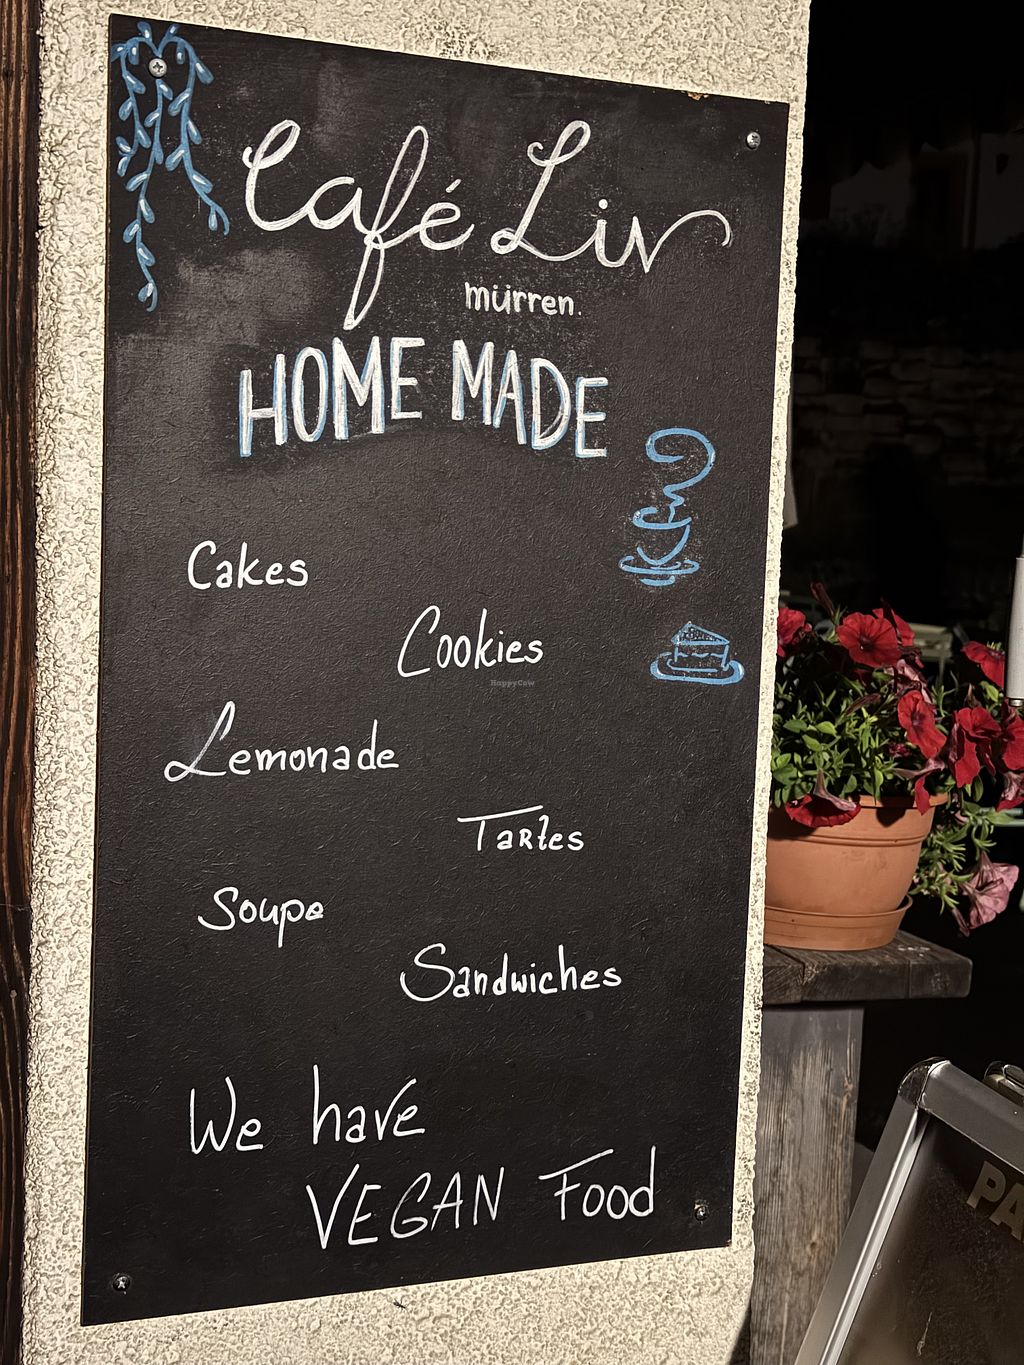 Café Liv
mürren.
HOME MADE
Cakes
Cookies
HappyCow
Lemonade
Tartes
Soupe
Sandwiches
We have
VEGAN Food
PA